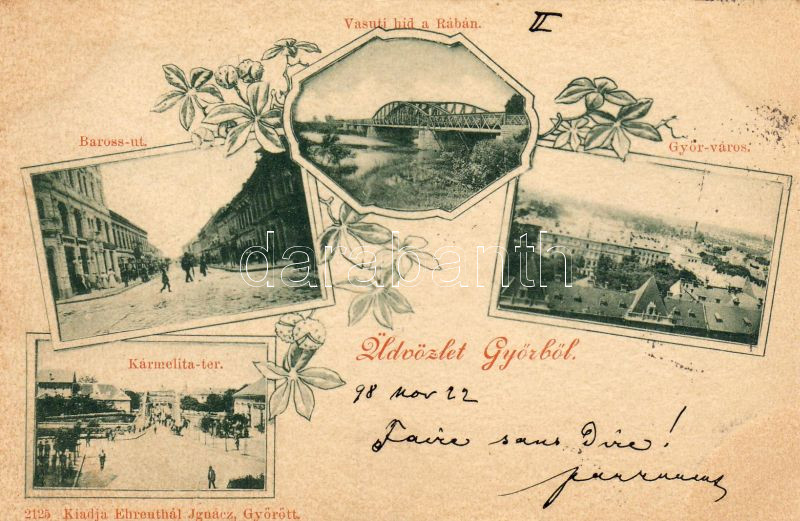 Vasuti hid a Rábán.
II
Baross-ut.
Győr-város.
darabanth
Üldvözlet Győrből.
Kármelita-ter.
98 nov 22
Faire sans Dire!
2125 Kiadja Ehrenthál Jgnácz, Győrött.